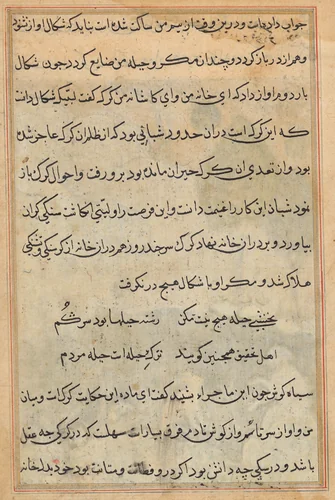 جواب داد بات و درین وقت از بهر من ساکت شده است بناید که شکال آواز شنود
و هم از در باز کردد و چندان مکر و حیله من ضایع کردد چون شکال
بار دوم آواز داد که ای خانه من و ای کاشانه من کرک گفت لبیک شکال دانست
که این کرک است دران حدود شبانی بود که از ظلم آن کرک عاجز شده
بود و از تعدی آن کرک حیران مانده بود برو رفت و احوال کرک باز
نمود شبان این کار را غنیمت دانست و این فرصت را و سنکی کران
بیاورد و بر در آن خانه نهاد کرک سر چند روز هم در آن خانه از کرسنکی و تشنکی
هلاک شد و مکر او با شکال هیچ در نکرفت
نخشبی حیله هیچ نیست مکن رشته حیلها بود سر کم
اهل تحقیق همچنین کویند ترک حیله است حیله مردم
سیاه کوش چون این ماجرا بشنید گفت ای ماده این حکایت کرک است و میان
من و او از سر تا سم و از کوش تا دم فرق بسیار است سهل است که در کرک چه عقل
باشد و در سکی چه دانش بود اکر درو فطانت و متانت بودی خود بدر خانه